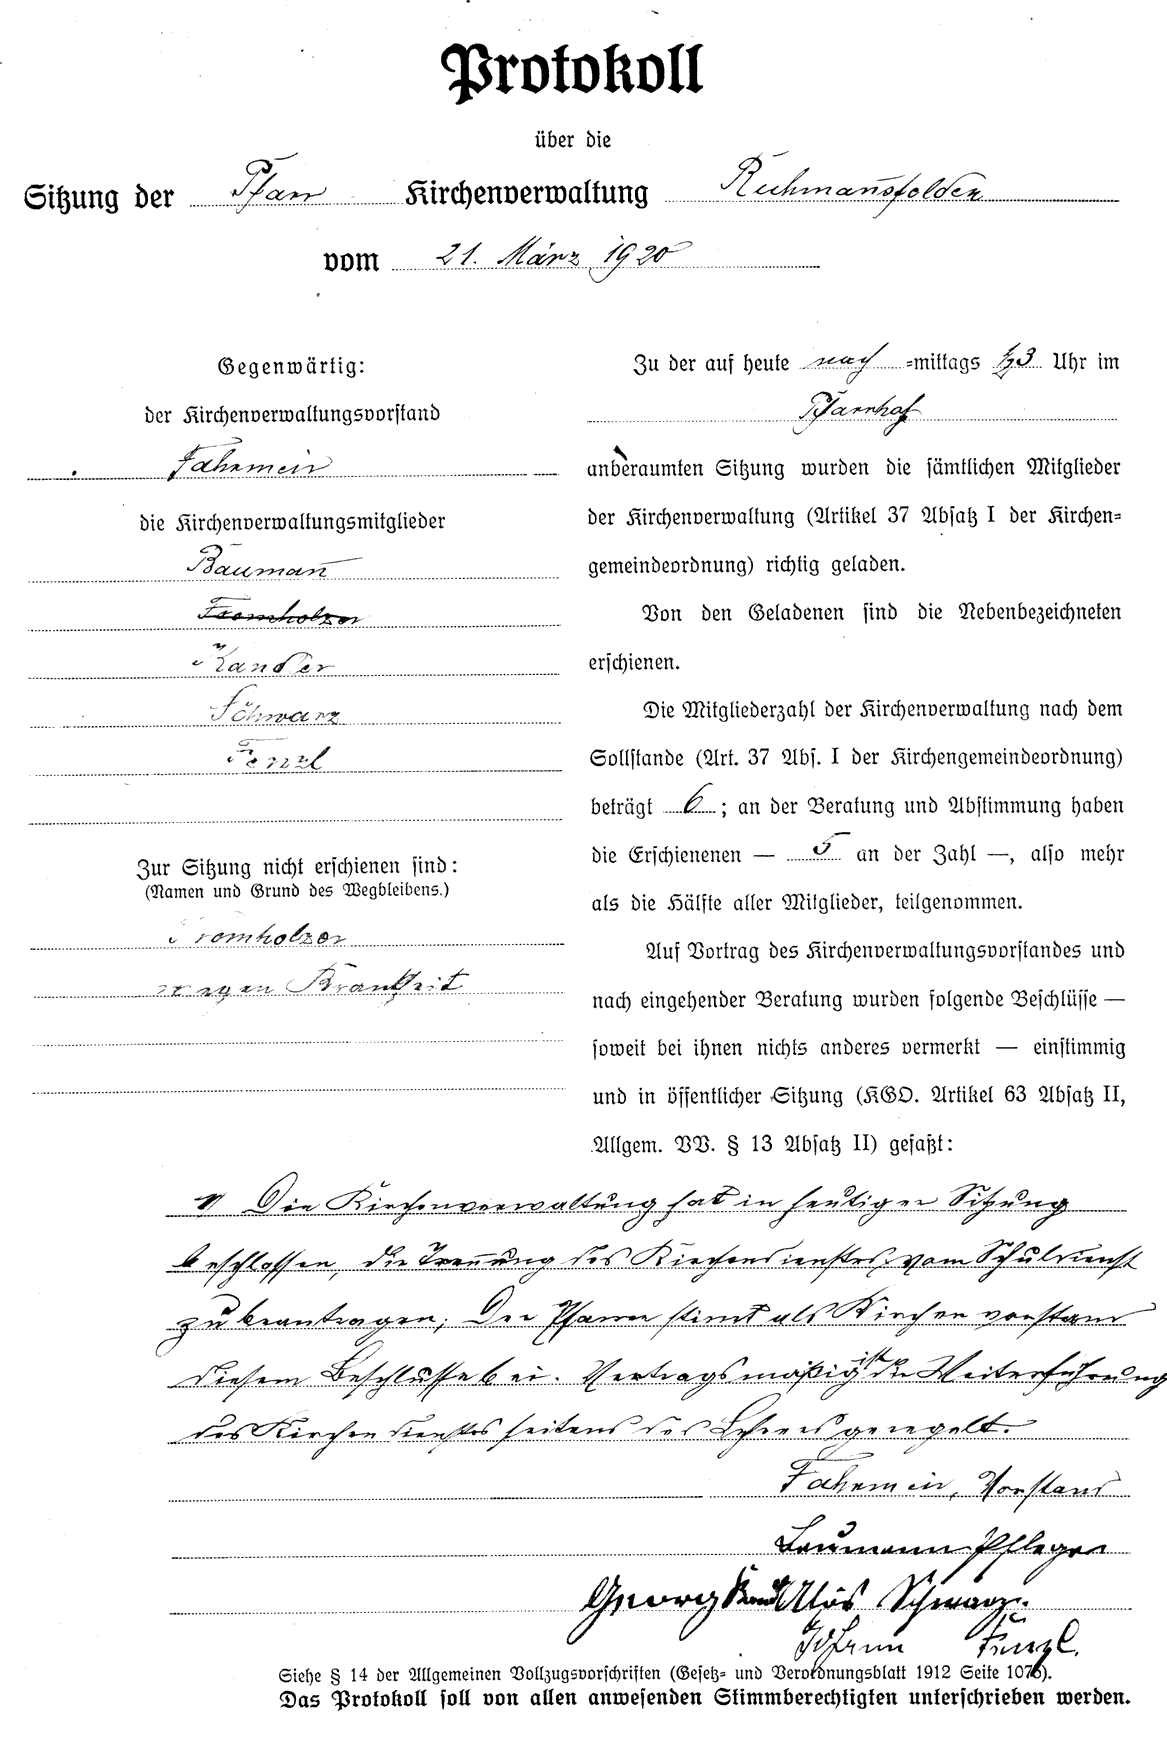 Protokoll
über die
Sitzung der Pfarr Kirchenverwaltung Ruhmansfelden
vom 21. März 1920
Gegenwärtig:
der Kirchenverwaltungsvorstand
Fahrmeir
die Kirchenverwaltungsmitglieder
Bauman̄
Fromholzer
Kandler
Schwarz
Fenzl
Zur Sitzung nicht erschienen sind:
(Namen und Grund des Wegbleibens.)
Fromholzer
wegen Krankheit
Zu der auf heute nach =mittags ½3 Uhr im
Pfarrhof
anberaumten Sitzung wurden die sämtlichen Mitglieder
der Kirchenverwaltung (Artikel 37 Absatz I der Kirchen=
gemeindeordnung) richtig geladen.
Von den Geladenen sind die Nebenbezeichneten
erschienen.
Die Mitgliederzahl der Kirchenverwaltung nach dem
Sollstande (Art. 37 Abs. I der Kirchengemeindeordnung)
beträgt 6; an der Beratung und Abstimmung haben
die Erschienenen — 5 an der Zahl —, also mehr
als die Hälfte aller Mitglieder, teilgenommen.
Auf Vortrag des Kirchenverwaltungsvorstandes und
nach eingehender Beratung wurden folgende Beschlüsse —
soweit bei ihnen nichts anderes vermerkt — einstimmig
und in öffentlicher Sitzung (KGO. Artikel 63 Absatz II,
Allgem. VV. § 13 Absatz II) gefaßt:
1) Die Kirchenverwaltung hat in heutiger Sitzung
beschlossen, die Tren̄ung des Kirchendienstes vom Schuldienst
zu beantragen; Der Pfarrer stim̄t als Kirchenvorstand
diesem Beschlusse bei. Vertragsmäßig ist die Weiterführung
des Kirchendienstes seitens des Lehrers geregelt.
Fahrmeir, Vorstand
Baumann Pfleger
Georg Alois Schwarz.
Johann Fenzl.
Siehe § 14 der Allgemeinen Vollzugsvorschriften (Gesetz= und Verordnungsblatt 1912 Seite 1076).
Das Protokoll soll von allen anwesenden Stimmberechtigten unterschrieben werden.